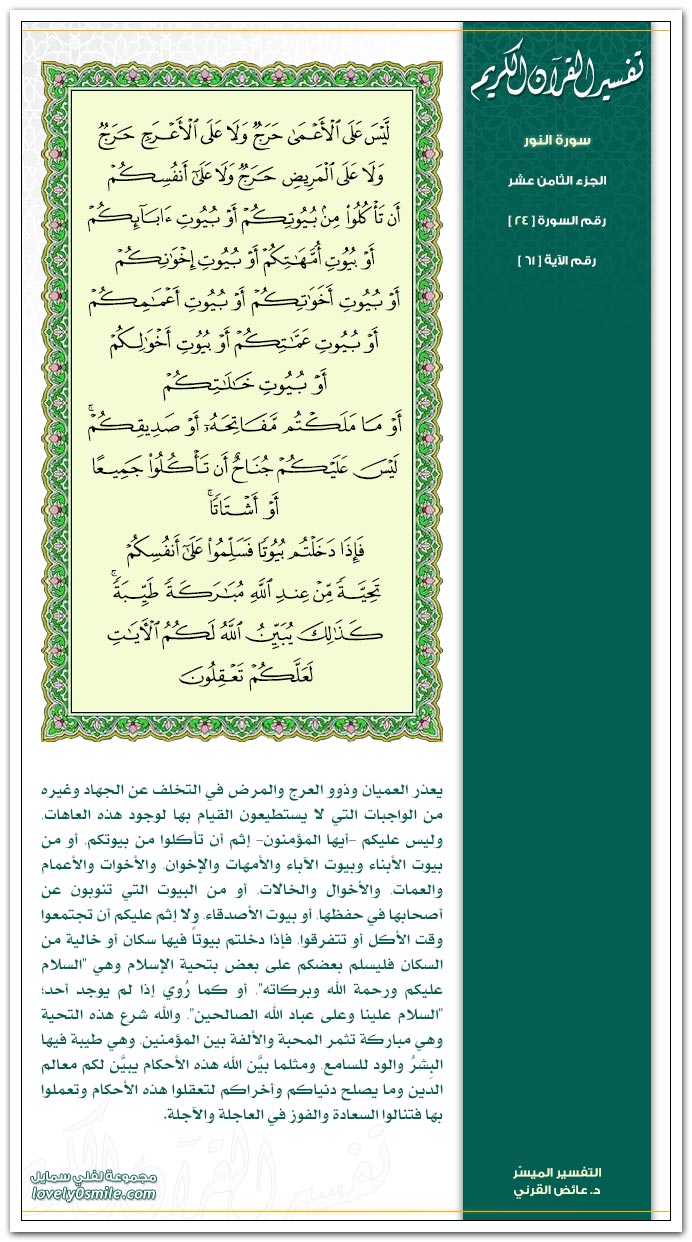 تفسير القرآن الكريم
سورة النور
الجزء الثامن عشر
رقم السورة [ ٢٤ ]
رقم الآية [ ٦١ ]
لَّيْسَ عَلَى ٱلْأَعْمَىٰ حَرَجٌ وَلَا عَلَى ٱلْأَعْرَجِ حَرَجٌ
وَلَا عَلَى ٱلْمَرِيضِ حَرَجٌ وَلَا عَلَىٰٓ أَنفُسِكُمْ
أَن تَأْكُلُوا۟ مِنۢ بُيُوتِكُمْ أَوْ بُيُوتِ ءَابَآئِكُمْ
أَوْ بُيُوتِ أُمَّهَـٰتِكُمْ أَوْ بُيُوتِ إِخْوَٰنِكُمْ
أَوْ بُيُوتِ أَخَوَٰتِكُمْ أَوْ بُيُوتِ أَعْمَـٰمِكُمْ
أَوْ بُيُوتِ عَمَّـٰتِكُمْ أَوْ بُيُوتِ أَخْوَٰلِكُمْ
أَوْ بُيُوتِ خَـٰلَـٰتِكُمْ
أَوْ مَا مَلَكْتُم مَّفَاتِحَهُۥٓ أَوْ صَدِيقِكُمْ ۚ
لَيْسَ عَلَيْكُمْ جُنَاحٌ أَن تَأْكُلُوا۟ جَمِيعًا
أَوْ أَشْتَاتًا ۚ
فَإِذَا دَخَلْتُم بُيُوتًا فَسَلِّمُوا۟ عَلَىٰٓ أَنفُسِكُمْ
تَحِيَّةً مِّنْ عِندِ ٱللَّهِ مُبَـٰرَكَةً طَيِّبَةً ۚ
كَذَٰلِكَ يُبَيِّنُ ٱللَّهُ لَكُمُ ٱلْـَٔايَـٰتِ
لَعَلَّكُمْ تَعْقِلُونَ
يعذر العميان وذوو العرج والمرض في التخلف عن الجهاد وغيره
من الواجبات التي لا يستطيعون القيام بها لوجود هذه العاهات.
وليس عليكم -أيها المؤمنون- إثم أن تأكلوا من بيوتكم، أو من
بيوت الأبناء وبيوت الآباء والأمهات والإخوان، والأخوات والأعمام
والعمات، والأخوال والخالات، أو من البيوت التي تنوبون عن
أصحابها في حفظها، أو بيوت الأصدقاء، ولا إثم عليكم أن تجتمعوا
وقت الأكل أو تتفرقوا، فإذا دخلتم بيوتاً فيها سكان أو خالية من
السكان فليسلم بعضكم على بعض بتحية الإسلام وهي "السلام
عليكم ورحمة الله وبركاته"، أو كما رُوي إذا لم يوجد أحد؛
"السلام علينا وعلى عباد الله الصالحين"، والله شرع هذه التحية
وهي مباركة تثمر المحبة والألفة بين المؤمنين، وهي طيبة فيها
البِشرُ والود للسامع، ومثلما بيَّن الله هذه الأحكام يبيَّن لكم معالم
الدين وما يصلح دنياكم وأخراكم لتعقلوا هذه الأحكام وتعملوا
بها فتنالوا السعادة والفوز في العاجلة والآجلة.
تفسير القرآن الكريم
التفسير الميسّر
د. عائض القرني
مجموعة لفلي سمايل
lovely0smile.com